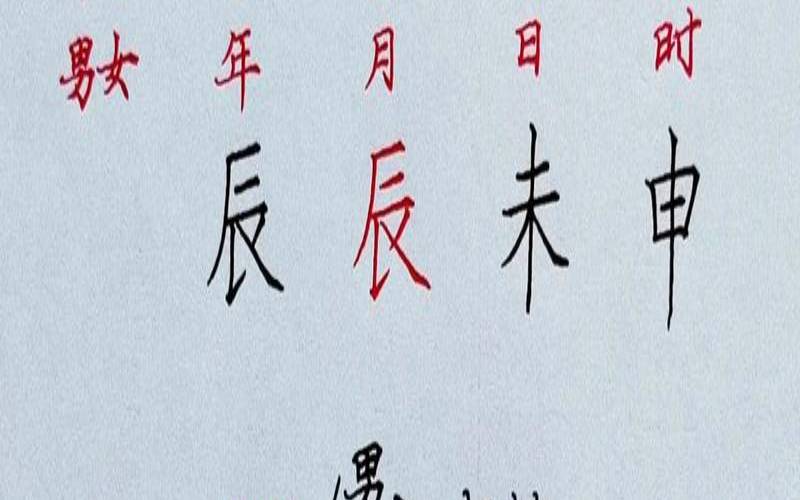 男女 年 月 日 时
辰 辰 未 申